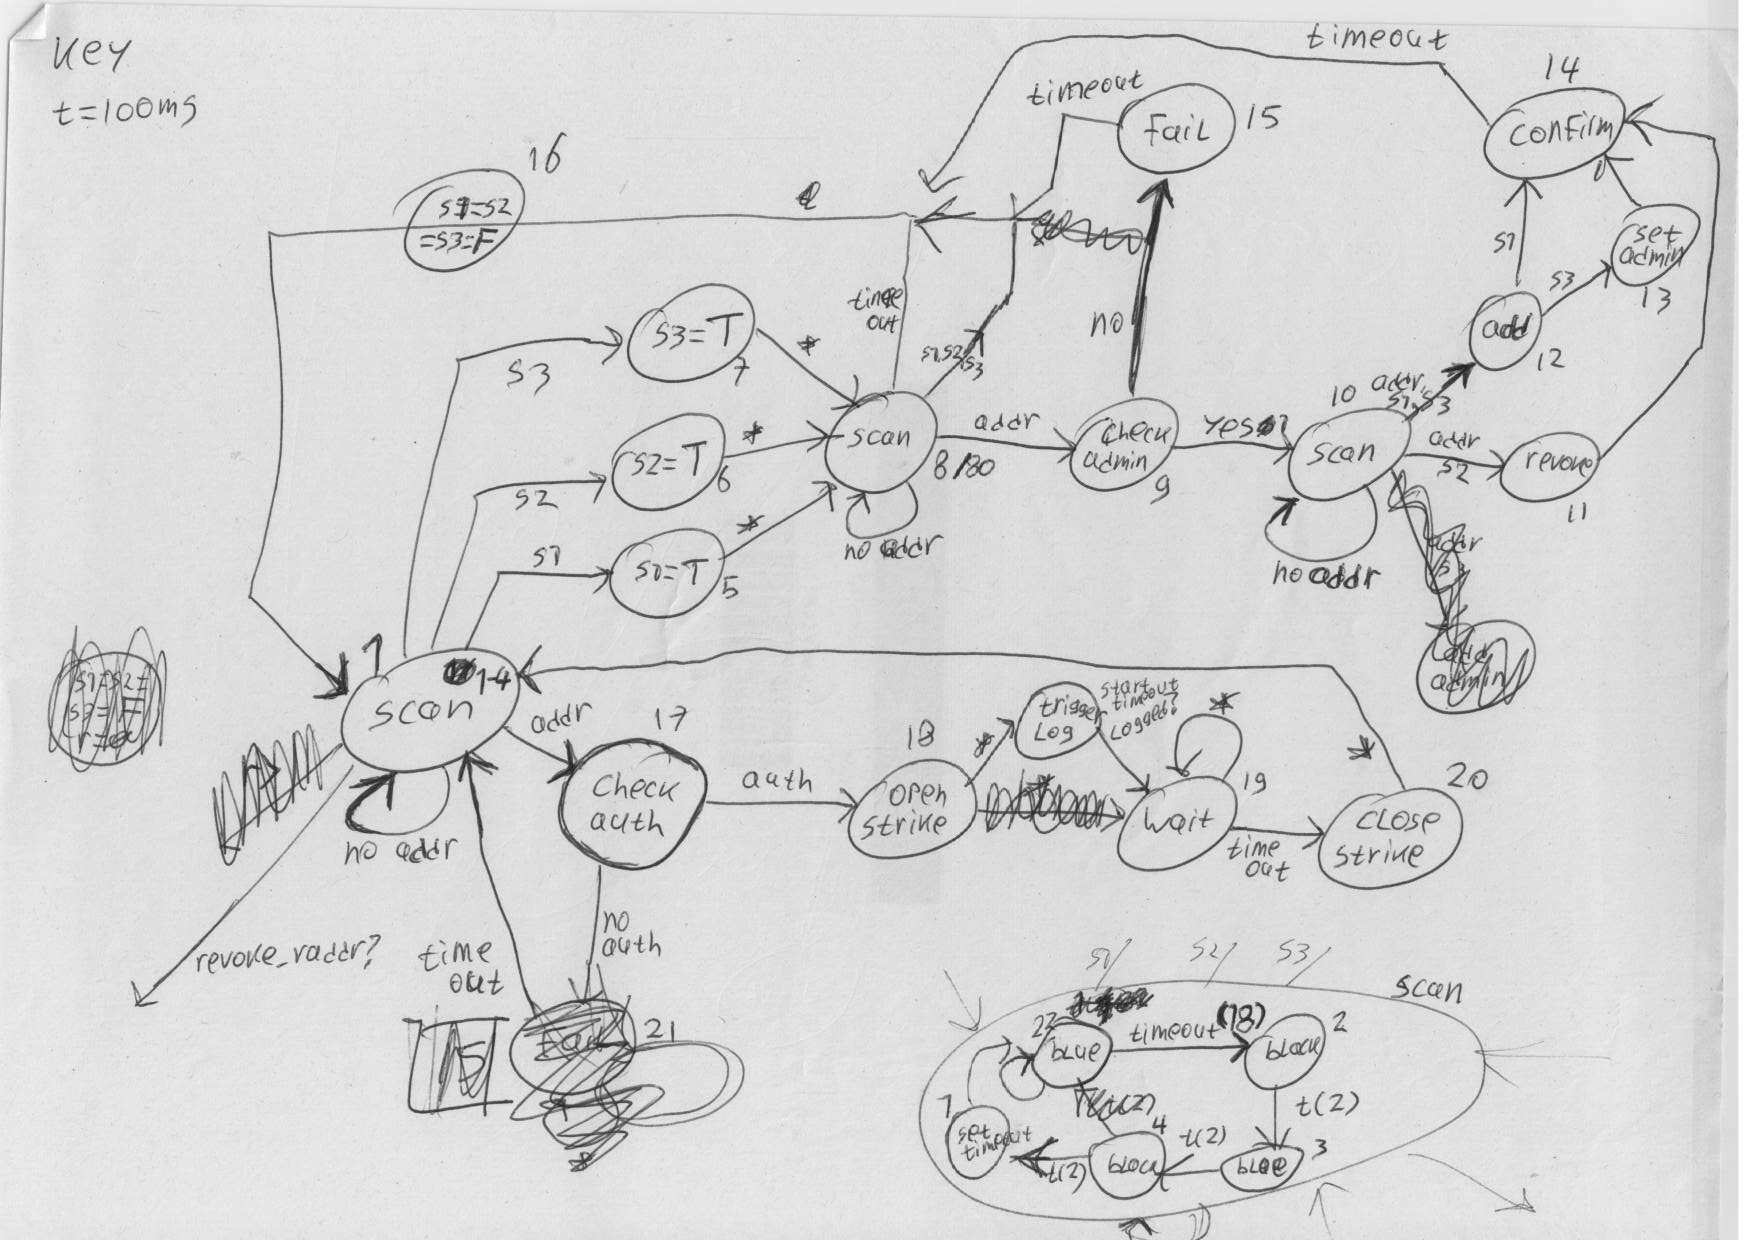 key
t=100ms
timeout
timeout
14
confirm
15
Fail
16
s1=s2
=s3=F
set
admin
13
s1
s3
add
12
time
out
s1,s2,s3
no
s3=T
7
*
s3
scan
8/80
addr
check
admin
9
yes
10
scan
addr
s1,s3
addr
s2
revoke
11
s2=T
6
*
s2
no addr
no addr
addr
s1=T
5
*
s1
admin
s1=s2=
1
1-4
scan
addr
17
check
auth
auth
18
open
strike
*
trigger
Log
start out
timeout
Logged?
*
19
wait
time
out
*
20
close
strike
no addr
no
auth
revoke_raddr?
time
out
15
Fail
21
*
s1/
s2/
s3/
scan
22
blue
timeout
(18)
2
black
t(2)
3
blue
t(2)
4
black
t(2)
t(2)
1
set
timeout